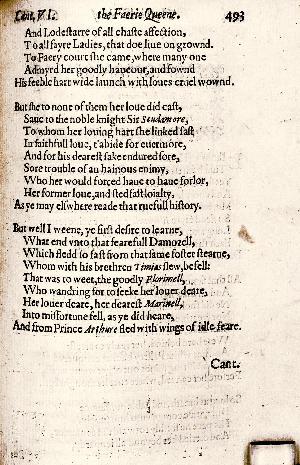 Cant. VI. the Faerie Queene. 493
And Lodestarre of all chaste affection,
To all fayre Ladies, that doe liue on grownd.
To Faery court she came, where many one
Admyrd her goodly haueour, and fownd
His feeble hart wide launch with loues cruel wownd.
But she to none of them her loue did cast,
Saue to the noble knight Sir Scudamore,
To whom her louing hart she linked fast
In faithfull loue, t'abide for euermore,
And for his dearest sake endured sore,
Sore trouble of an hainous enimy,
Who her would forced haue to haue forlor,
Her former loue, and stedfast loialty,
As ye may elswhere reade that ruefull history.
But well I weene, ye first desire to learne,
What end vnto that fearefull Damozell,
Which fledd so fast from that same foster stearne,
Whom with his brethren Timias slew, befell:
That was to weet, the goodly Florimell,
Who wandring for to seeke her louer deare,
Her louer deare, her dearest Marinell,
Into misfortune fell, as ye did heare,
And from Prince Arthure fled with wings of idle feare.
Cant.